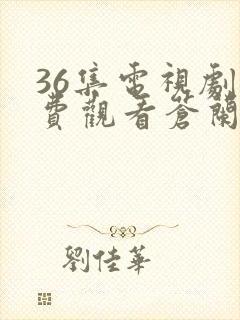 36集電視劇
費觀看蒼蘭
劉佳華